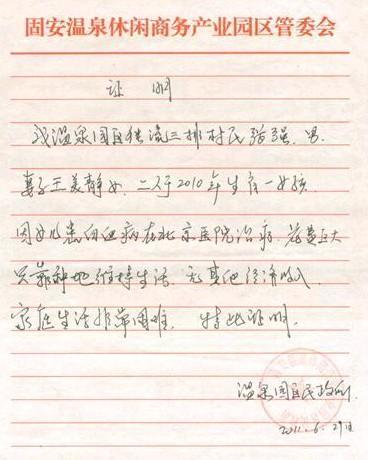 固安温泉休闲商务产业园区管委会
证 明
我温泉园区独流三排村民骆强，男，
妻子王美静女，二人于2010年生育一女孩，
因女儿患白血病在北京医院治病，花费巨大
只靠种地维持生活，无其他经济收入，
家庭生活非常困难， 特此证明。
温泉园区民政所
2011.6.29日